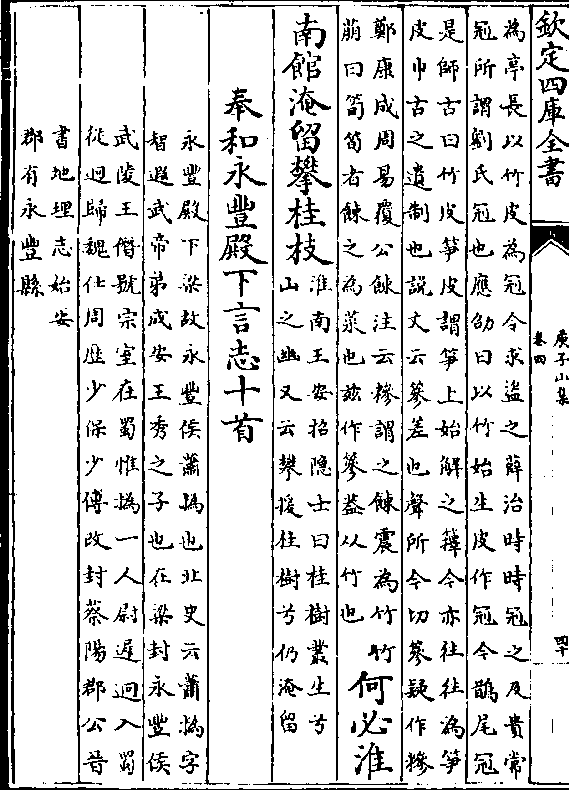 欽定四庫全書
庾子山集
卷四
四十
為亭長以竹皮為冠令求盗之薛治時時冠之及貴常
冠所謂劉氏冠也應劭曰以竹始生皮作冠今鵲尾冠
是師古曰竹皮笋皮謂笋上始解之籜今亦往往為笋
皮巾古之遺制也説文云篸差也聲所今切篸疑作糝
鄭康成周易覆公餗注云糝謂之餗震為竹竹
萠曰筍筍者餗之為菜也兹作篸葢从竹也
何必淮
南館淹留攀桂枝
淮南王安招隐士曰桂樹叢生兮
山之幽又云攀援桂樹兮仍淹留
奉和永豐殿下言志十首
永豐殿下梁故永豐侯蕭撝也北史云蕭撝字
智遐武帝弟成安王秀之子也在梁封永豐侯
武陵王僭號宗室在蜀惟撝一人尉遲迥入蜀
從迥歸魏仕周歴少保少傅改封蔡陽郡公晉
書地理志始安
郡有永豐縣